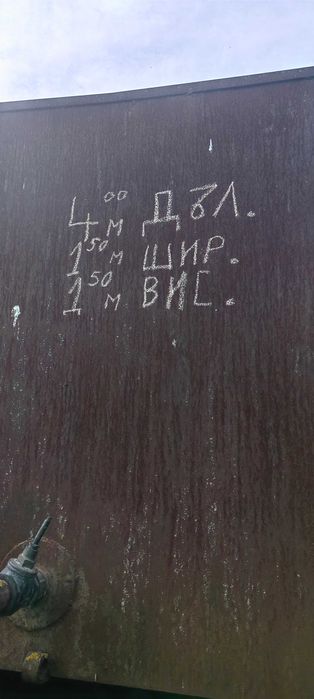 4⁰⁰ м дъл.
1⁵⁰ м шир.
1⁵⁰ м вис.